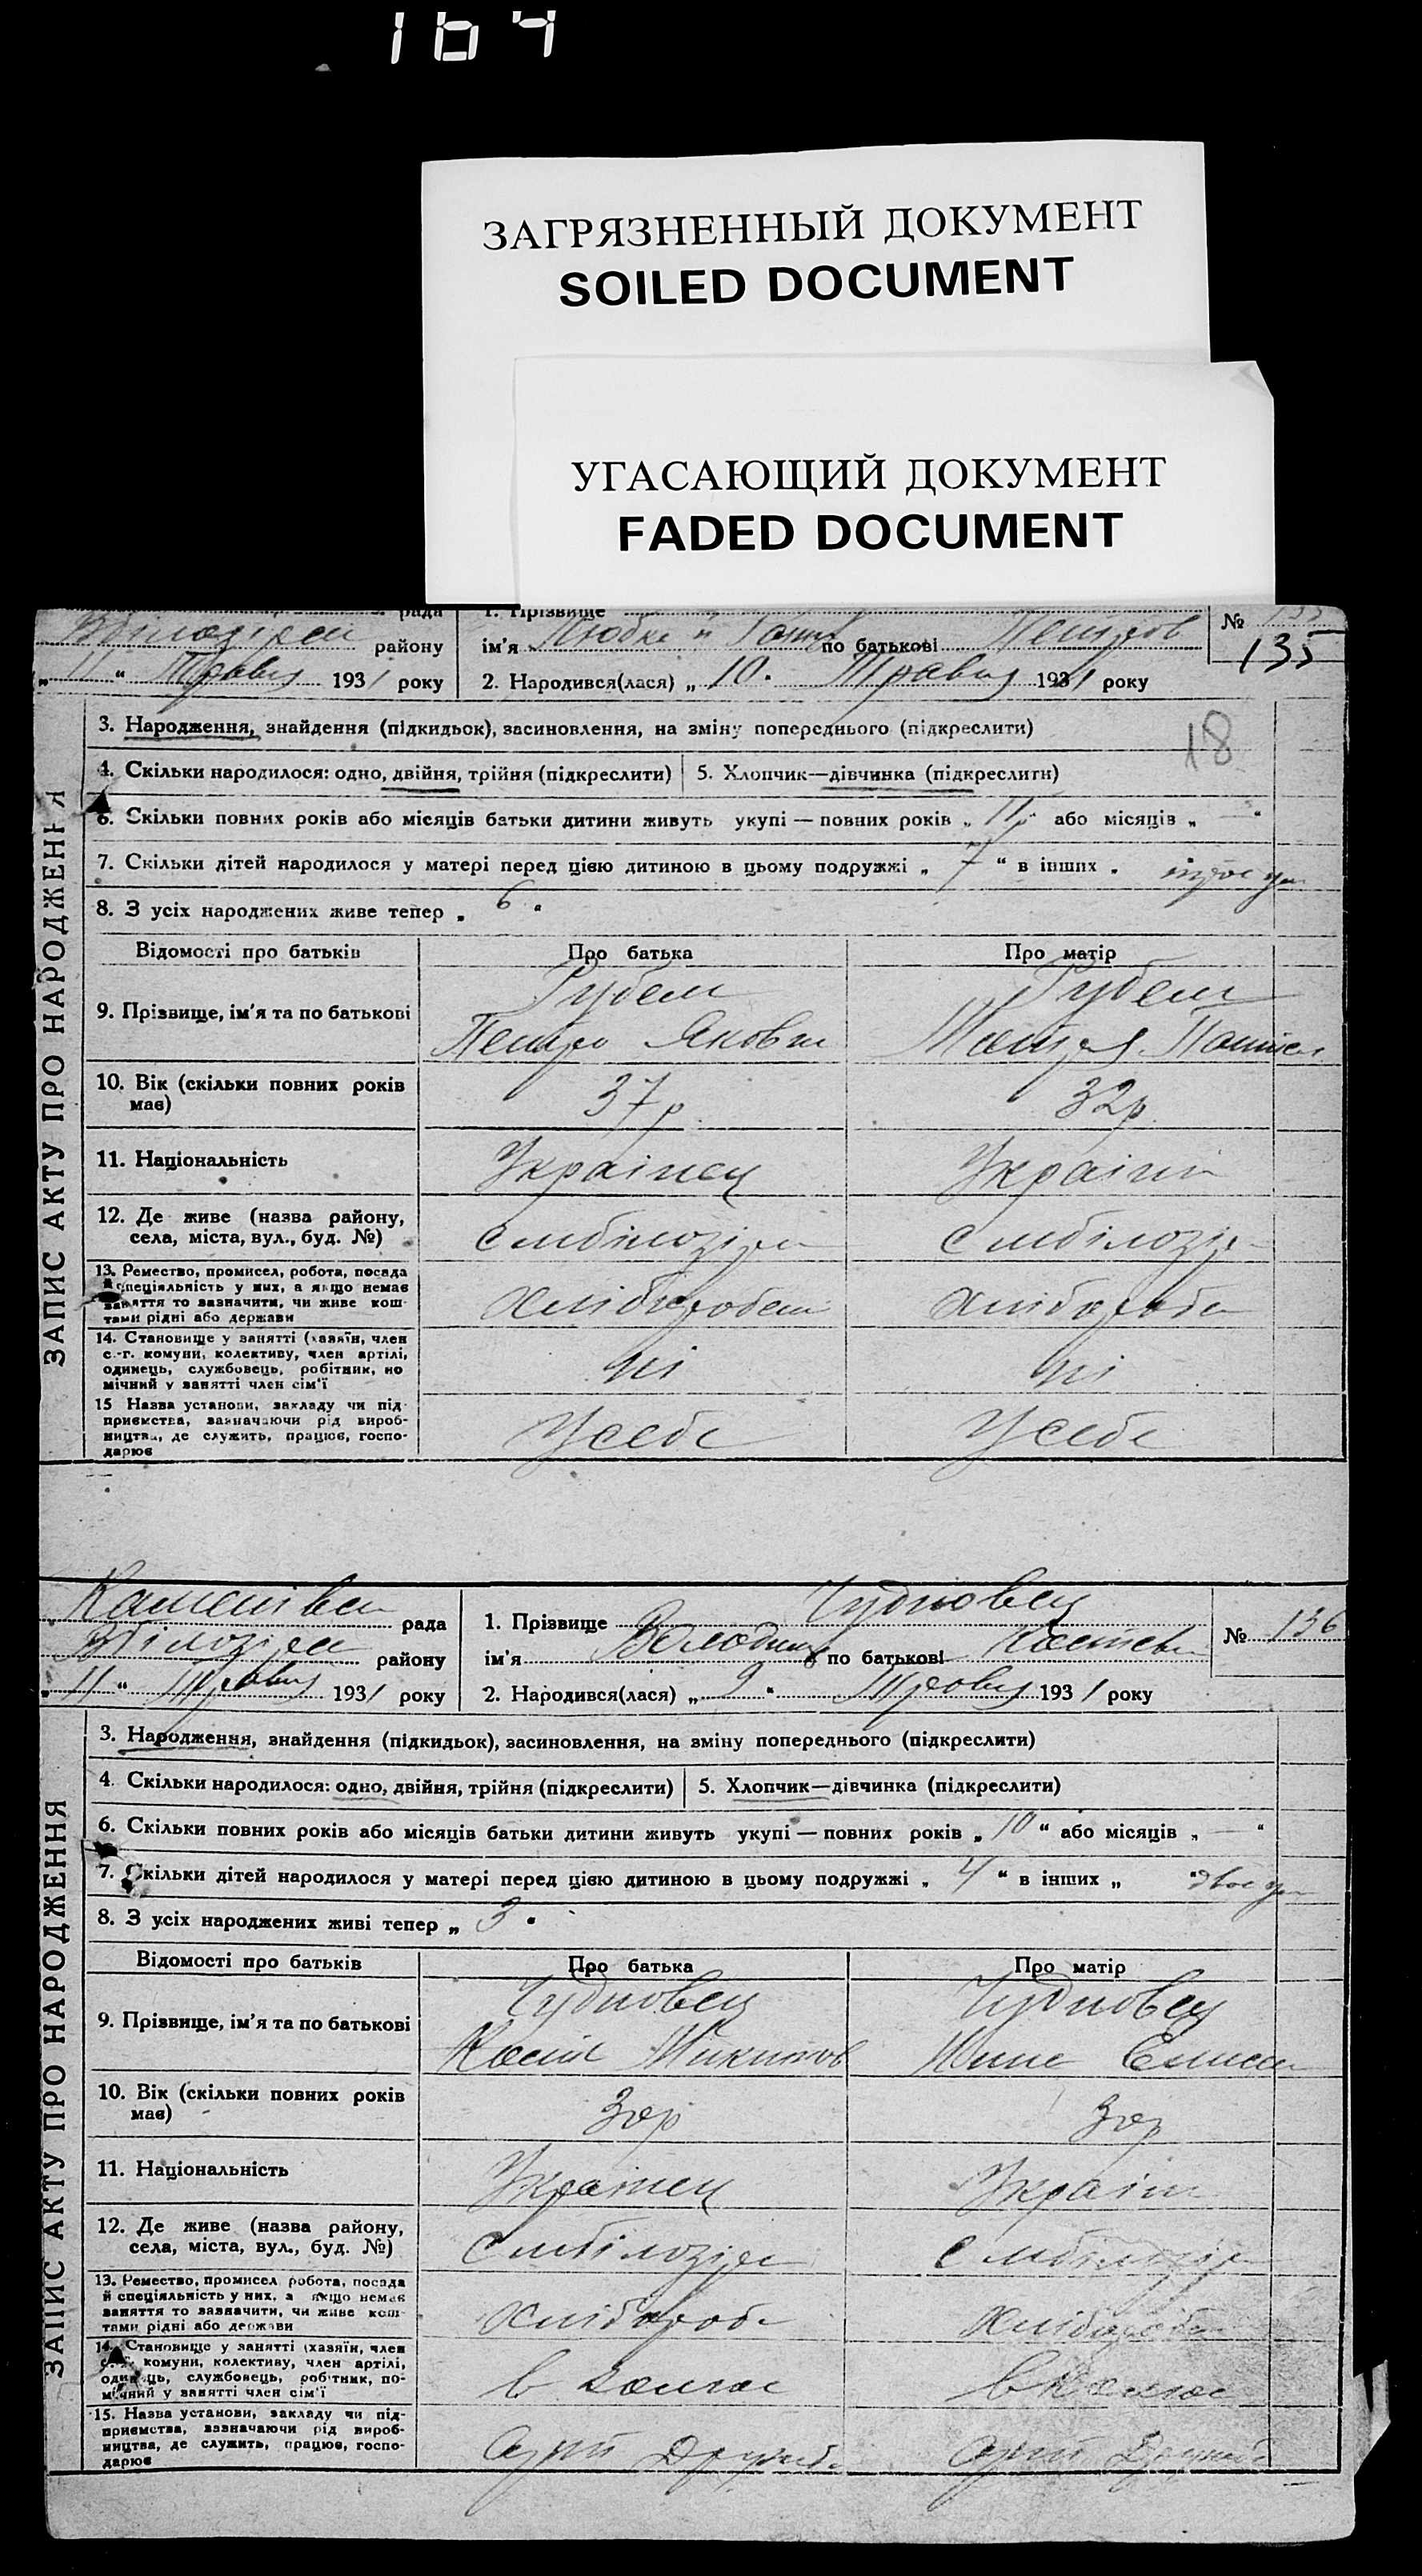 164
ЗАГРЯЗНЕННЫЙ ДОКУМЕНТ
SOILED DOCUMENT
УГАСАЮЩИЙ ДОКУМЕНТ
FADED DOCUMENT
рада 1. Прізвище
району ім'я по батькові Петров №
135
„ 11 “ Травня 1931 року 2. Народився(лася) „ 10. Травня 1931 року
18
ЗАПИС АКТУ ПРО НАРОДЖЕННЯ
3. Народження, знайдення (підкидьок), засиновлення, на зміну попереднього (підкреслити)
4. Скільки народилося: одно, двійня, трійня (підкреслити) 5. Хлопчик—дівчинка (підкреслити)
6. Скільки повних років або місяців батьки дитини живуть укупі — повних років „ 11 “ або місяців „ — “
7. Скільки дітей народилося у матері перед цією дитиною в цьому подружжі „ 7 “ в інших „
8. З усіх народжених живе тепер „ 6 “
Відомості про батьків Про батька Про матір
9. Прізвище, ім'я та по батькові
Петро Яков
10. Вік (скільки повних років має) 37 р. 32 р
11. Національність Украінец Украін
12. Де живе (назва району, села, міста, вул., буд. №)
13. Ремество, промисел, робота, посада
й спеціяльність у них, а якщо немає
заняття то зазначити, чи живе кош-
тами рідні або держави
14. Становище у занятті (хазяїн, член
с.-г. комуни, колективу, член артілі,
одинець, службовець, робітник, по
мічний у занятті член сім'ї
15 Назва установи, закладу чи під-
приємства, зазначаючи рід вироб-
ництва, де служить, працює, госпо-
дарює
У себе У себе
рада 1. Прізвище Чудновец
району ім'я Володим по батькові № 136
„ 11 “ Травня 1931 року 2. Народився(лася) „ 9 “ Травня 1931 року
ЗАПИС АКТУ ПРО НАРОДЖЕННЯ
3. Народження, знайдення (підкидьок), засиновлення, на зміну попереднього (підкреслити)
4. Скільки народилося: одно, двійня, трійня (підкреслити) 5. Хлопчик—дівчинка (підкреслити)
6. Скільки повних років або місяців батьки дитини живуть укупі — повних років „ 10 “ або місяців „ — “
7. Скільки дітей народилося у матері перед цією дитиною в цьому подружжі „ 4 “ в інших „
8. З усіх народжених живі тепер „ 3 “
Відомості про батьків Про батька Про матір
9. Прізвище, ім'я та по батькові Чудновец Чудновец
Микитов
10. Вік (скільки повних років має) 30р 30р
11. Національність Украінец Украін
12. Де живе (назва району, села, міста, вул., буд. №)
13. Ремество, промисел робота, посада
й спеціяльність у них, а якщо немає
заняття то зазначити, чи живе кош-
тами рідні або держави
14. Становище у занятті (хазяїн, член
с.-г. комуни, колективу, член артілі,
одинець, службовець, робітник, по-
мічний у занятті член сім'ї
15. Назва установи, закладу чи під-
приємства, зазначаючи рід вироб-
ництва, де служить, працює, госпо-
дарює